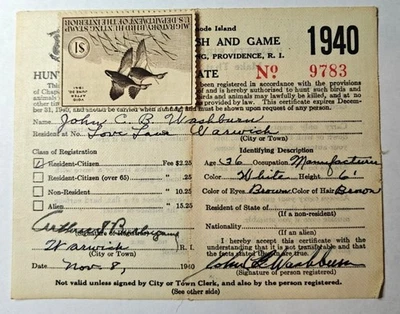 ode Island
SH AND GAME 1940
NG, PROVIDENCE, R. I.
HUN ATE No. 9783
MIGRATORY BIRD HUNTING STAMP
U.S. DEPARTMENT OF THE INTERIOR
$1
been registered in accordance with the provisions
of Chap and is hereby authorized to hunt such birds and
birds and animals may lawfully be killed, and at no
other animals. This certificate expires December
31, 1940, and must be carried when and must be shown upon request of any person.
Name John C. B. Washburn
Resident at No. Love Lane Warwick
(City or Town)
Class of Registration
Resident-Citizen Fee $2.25
Resident-Citizen (over 65) .25
Non-Resident " 10.25
Alien " 15.25
Identifying Description
Age 26 Occupation Manufacture
Color White Height 6'
Color of Eyes Brown Color of Hair Brown
Resident of State of
(If a non-resident)
Nationality
(If an alien)
I hereby accept this certificate with the
understanding that it is not transferable and that
the facts stated therein are true.
Warwick R. I.
(City or Town)
Date Nov 8, 1940
John C B Washburn
(Signature of person registered)
Not valid unless signed by City or Town Clerk, and also by the person registered.
(See other side)